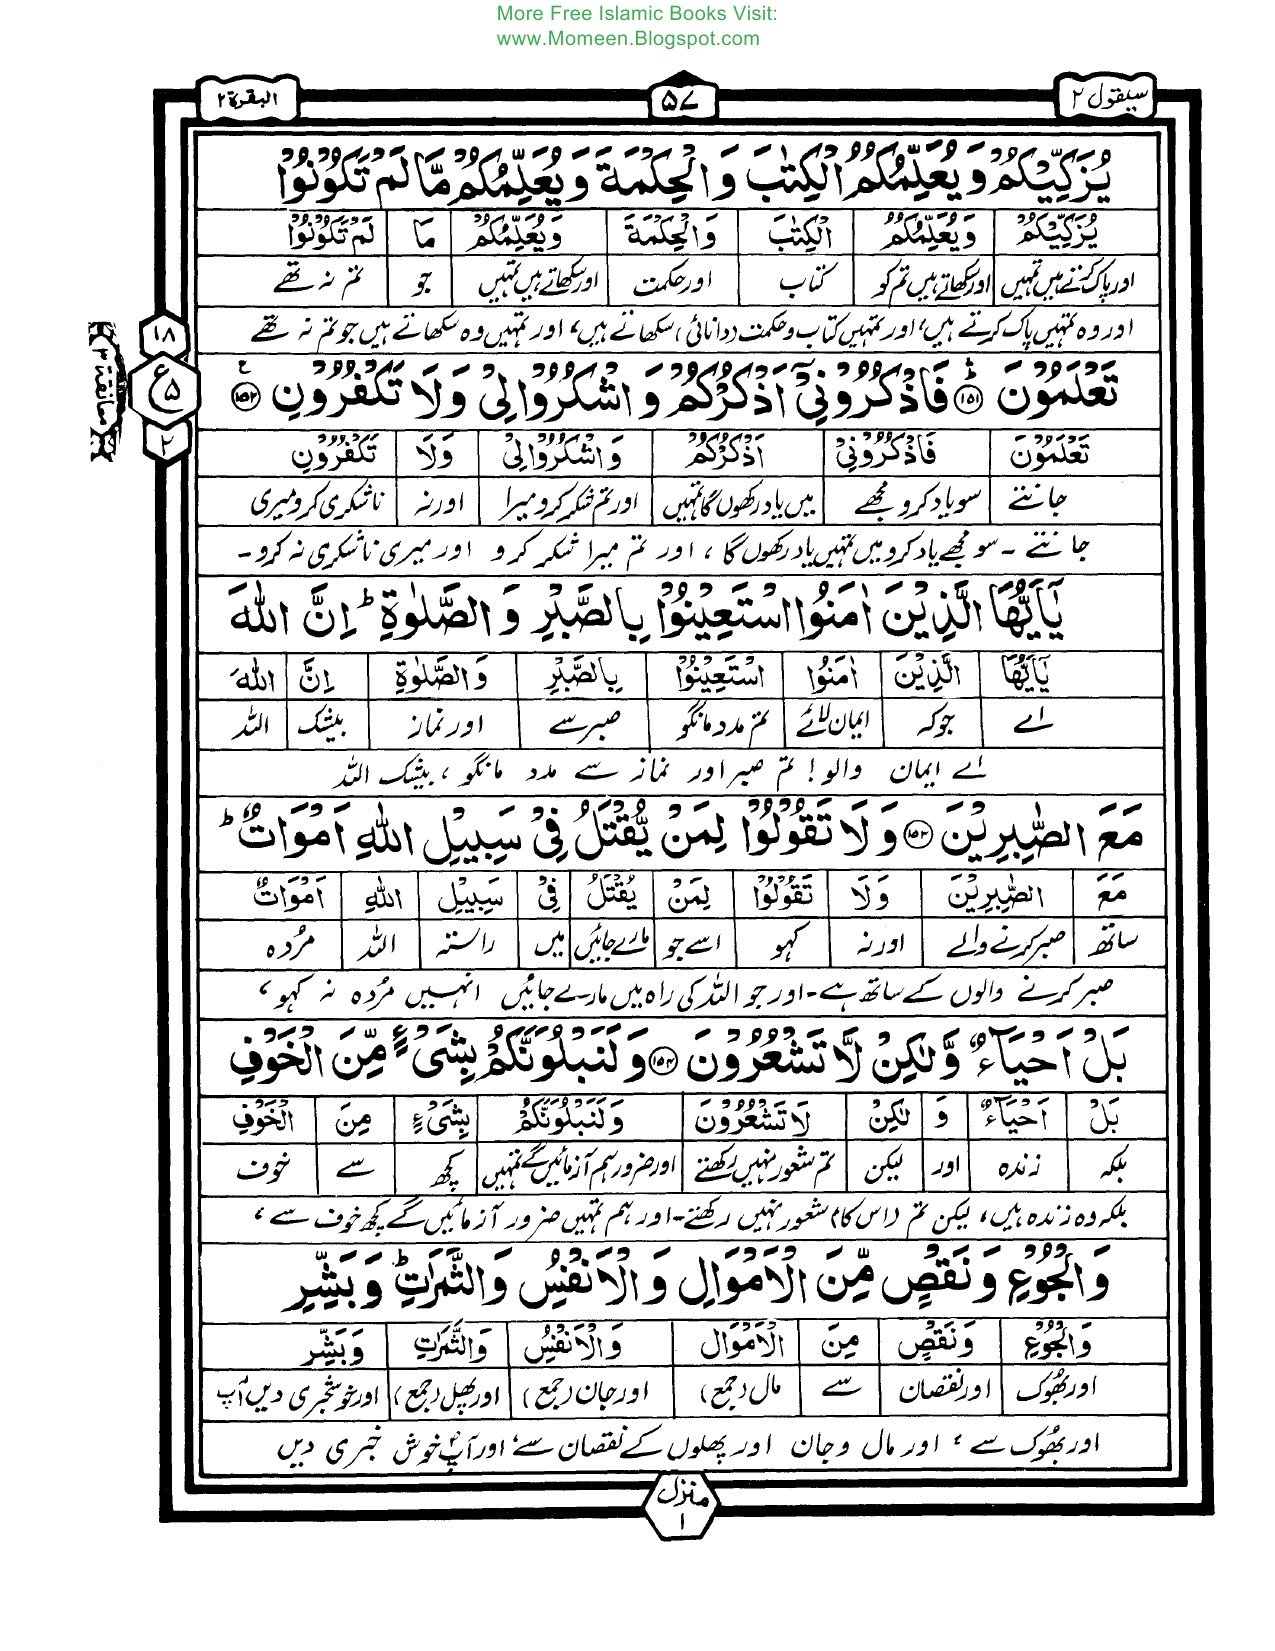 More Free Islamic Books Visit:
www.Momeen.Blogspot.com
سیقول ۲
۵۷
البقرة ۲
یُزَكِّیْكُمْ وَ یُعَلِّمُكُمُ الْكِتٰبَ وَ الْحِكْمَةَ وَ یُعَلِّمُكُمْ مَّا لَمْ تَكُوْنُوْا
یُزَكِّیْكُمْ وَ یُعَلِّمُكُمُ الْكِتٰبَ وَ الْحِكْمَةَ وَ یُعَلِّمُكُمْ مَا لَمْ تَكُوْنُوْا
اور پاک کرتے ہیں تمہیں اور سکھاتے ہیں تم کو کتاب اور حکمت اور سکھاتے ہیں تمہیں جو تم نہ تھے
اور وہ تمہیں پاک کرتے ہیں، اور تمہیں کتاب و حکمت (دانائی) سکھاتے ہیں، اور تمہیں وہ سکھاتے ہیں جو تم نہ تھے
۱۸
ع
۵
۲
معانقة ۳
تَعْلَمُوْنَ ؕ ۱۵۱ فَاذْكُرُوْنِیْۤ اَذْكُرْكُمْ وَ اشْكُرُوْا لِیْ وَ لَا تَكْفُرُوْنِ ۱۵۲ ع
تَعْلَمُوْنَ فَاذْكُرُوْنِیْ اَذْكُرْكُمْ وَ اشْكُرُوْا لِیْ وَلَا تَكْفُرُوْنِ
جانتے سو یاد کرو مجھے میں یاد رکھوں گا تمہیں اور تم شکر کرو میرا اور نہ ناشکری کرو میری
جانتے ۔ سو مجھے یاد کرو میں تمہیں یاد رکھوں گا، اور تم میرا شکر کرو اور میری ناشکری نہ کرو ۔
یٰۤاَیُّهَا الَّذِیْنَ اٰمَنُوا اسْتَعِیْنُوْا بِالصَّبْرِ وَ الصَّلٰوةِ ؕ اِنَّ اللّٰهَ
یٰۤاَیُّهَا الَّذِیْنَ اٰمَنُوا اسْتَعِیْنُوْا بِالصَّبْرِ وَ الصَّلٰوةِ اِنَّ اللّٰهَ
اے جو کہ ایمان لائے تم مدد مانگو صبر سے اور نماز بیشک اللہ
اے ایمان والو! تم صبر اور نماز سے مدد مانگو، بیشک اللہ
مَعَ الصّٰبِرِیْنَ ۱۵۳ وَ لَا تَقُوْلُوْا لِمَنْ یُّقْتَلُ فِیْ سَبِیْلِ اللّٰهِ اَمْوَاتٌ ؕ
مَعَ الصّٰبِرِیْنَ وَلَا تَقُوْلُوْا لِمَنْ یُقْتَلُ فِیْ سَبِیْلِ اللّٰهِ اَمْوَاتٌ
ساتھ صبر کرنے والے اور نہ کہو اسے جو مارے جائیں میں راستہ اللہ مردہ
صبر کرنے والوں کے ساتھ ہے ۔ اور جو اللہ کی راہ میں مارے جائیں انہیں مُردہ نہ کہو،
بَلْ اَحْیَآءٌ وَّ لٰكِنْ لَّا تَشْعُرُوْنَ ۱۵۴ وَ لَنَبْلُوَنَّكُمْ بِشَیْءٍ مِّنَ الْخَوْفِ
بَلْ اَحْیَآءٌ وَ لٰكِنْ لَا تَشْعُرُوْنَ وَ لَنَبْلُوَنَّكُمْ بِشَیْءٍ مِنَ الْخَوْفِ
بلکہ زندہ اور لیکن تم شعور نہیں رکھتے اور ضرور ہم آزمائیں گے تمہیں کچھ سے خوف
بلکہ وہ زندہ ہیں، لیکن تم (اس کا) شعور نہیں رکھتے ۔ اور ہم تمہیں ضرور آزمائیں گے کچھ خوف سے،
وَ الْجُوْعِ وَ نَقْصٍ مِّنَ الْاَمْوَالِ وَ الْاَنْفُسِ وَ الثَّمَرٰتِ ؕ وَ بَشِّرِ
وَ الْجُوْعِ وَ نَقْصٍ مِنَ الْاَمْوَالِ وَ الْاَنْفُسِ وَ الثَّمَرٰتِ وَ بَشِّرِ
اور بھُوک اور نقصان سے مال (جمع) اور جان (جمع) اور پھل (جمع) اور خوشخبری دیں آپ
اور بھُوک سے، اور مال و جان اور پھلوں کے نقصان سے، اور آپؐ خوش خبری دیں
منزل
۱